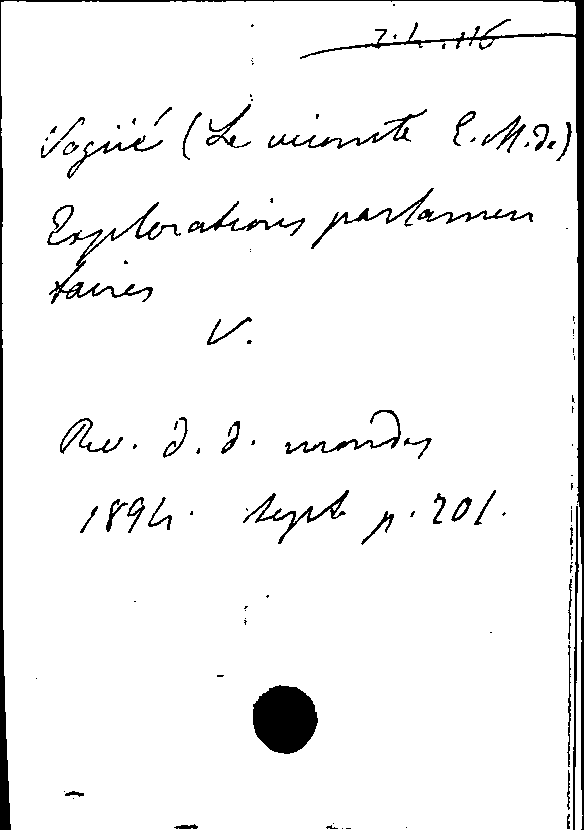 7.4.116
Vogüé (Le vicomte E. M. de)
Explorations parlamen
taires
V.
Rev. d. d. mondes
1894. sept p. 201.